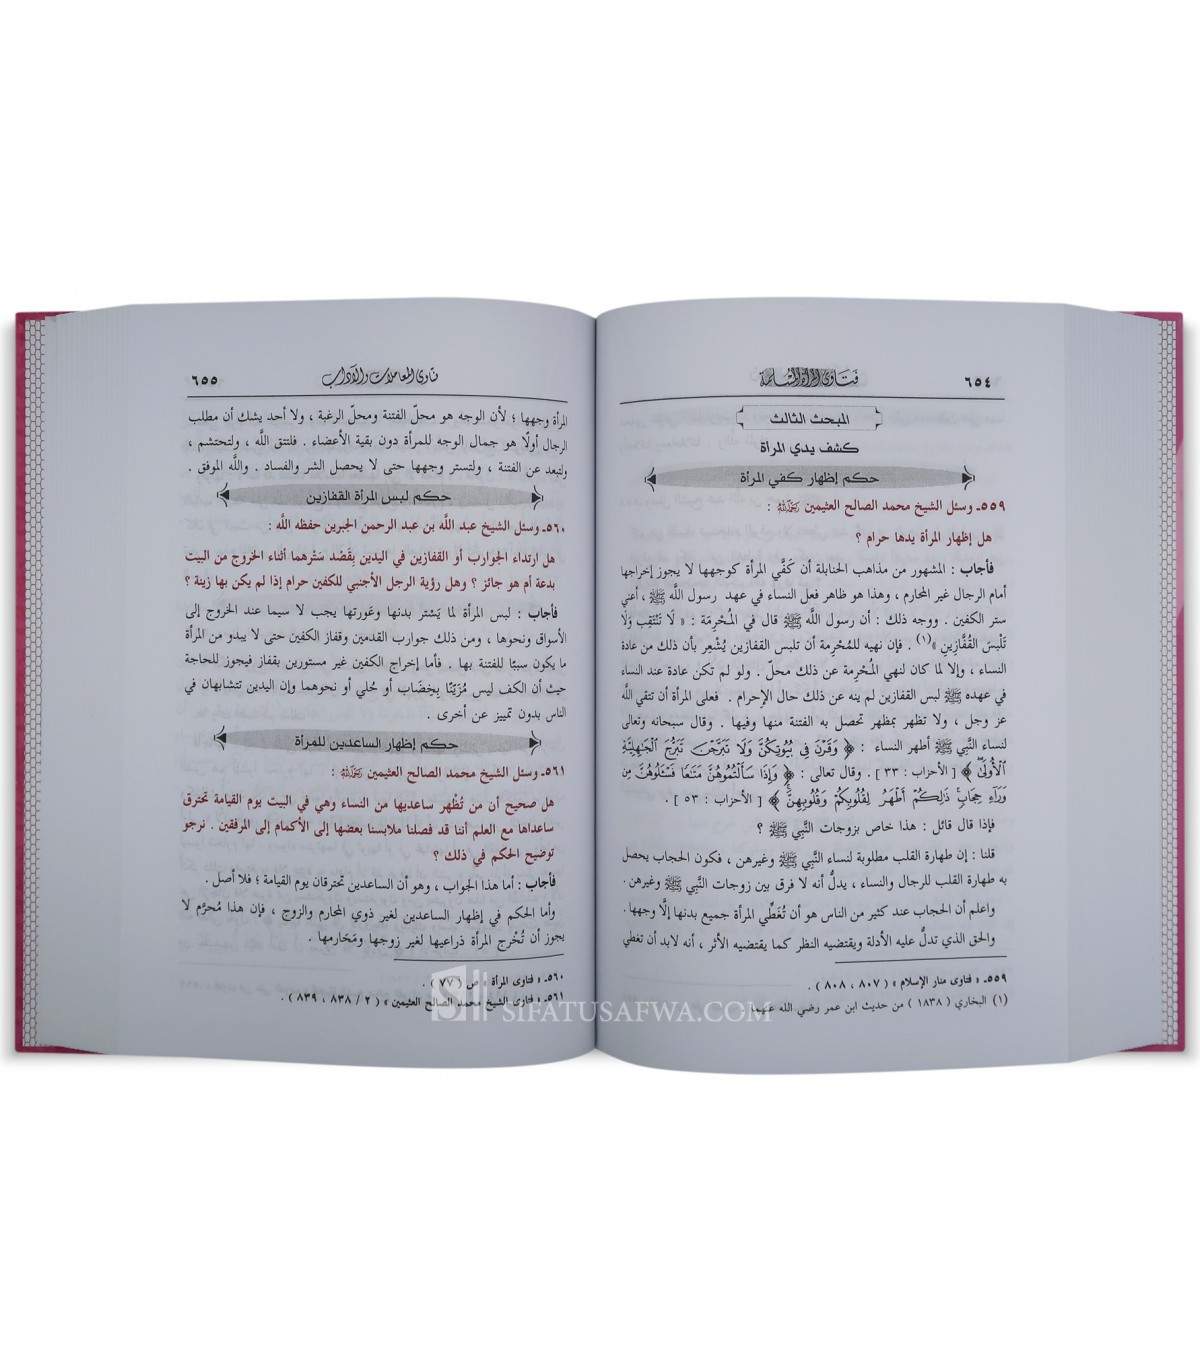 ٦٥٤
فتاوى المرأة المسلمة
المبحث الثالث
كشف يدي المرأة
حكم إظهار كفي المرأة
٥٥٩ـ وسئل الشيخ محمد الصالح العثيمين رحمه الله :
هل إظهار المرأة يدها حرام ؟
فأجاب : المشهور من مذاهب الحنابلة أن كَفَّي المرأة كوجهها لا يجوز إخراجها
أمام الرجال غير المحارم ، وهذا هو ظاهر فعل النساء في عهد رسول اللَّه ﷺ ، أعني
ستر الكفين . ووجه ذلك : أن رسول اللَّه ﷺ قال في المُحْرِمَة : « لَا تَنْتَقِب وَلَا
تَلْبَسَ القُفَّازِينِ »(١) . فإن نهيه للمُحْرِمة أن تلبس القفازين يُشْعِر بأن ذلك من عادة
النساء ، وإلا لما كان لنهي المُحْرِمة عن ذلك محلّ . ولو لم تكن عادة عند النساء
في عهده ﷺ لبس القفازين لم ينه عن ذلك حال الإحرام . فعلى المرأة أن تتقي اللَّه
عز وجل ، ولا تظهر بمظهر تحصل به الفتنة منها وفيها . وقال سبحانه وتعالى
لنساء النَّبي ﷺ أطهر النساء : ﴿ وَقَرْنَ فِي بُيُوتِكُنَّ وَلَا تَبَرَّجْنَ تَبَرُّجَ الْجَاهِلِيَّةِ
الْأُولَىٰ ﴾ [ الأحزاب : ٣٣ ] . وقال تعالى : ﴿ وَإِذَا سَأَلْتُمُوهُنَّ مَتَاعًا فَسْـَٔلُوهُنَّ مِن
وَرَآءِ حِجَابٍ ذَٰلِكُمْ أَطْهَرُ لِقُلُوبِكُمْ وَقُلُوبِهِنَّ ﴾ [ الأحزاب : ٥٣ ] .
فإذا قال قائل : هذا خاص بزوجات النَّبي ﷺ ؟
قلنا : إن طهارة القلب مطلوبة لنساء النَّبي ﷺ وغيرهن ، فكون الحجاب يحصل
به طهارة القلب للرجال والنساء ، يدلُّ أنه لا فرق بين زوجات النَّبي ﷺ وغيرهن .
واعلم أن الحجاب عند كثير من الناس هو أن تُغَطِّي المرأة جميع بدنها إلَّا وجهها .
والحق الذي تدلُّ عليه الأدلة ويقتضيه النظر كما يقتضيه الأثر ، أنه لابد أن تغطي
٥٥٩ـ « فتاوى منار الإسلام » ( ٨٠٧ ، ٨٠٨ ) .
(١) البخاري ( ١٨٣٨ ) من حديث ابن عمر رضي الله عنهما
فتاوى المعاملات والآداب
٦٥٥
المرأة وجهها ؛ لأن الوجه هو محلّ الفتنة ومحلّ الرغبة ، ولا أحد يشك أن مطلب
الرجال أولًا هو جمال الوجه للمرأة دون بقية الأعضاء . فلتتق اللَّه ، ولتحتشم ،
ولتبعد عن الفتنة ، ولتستر وجهها حتى لا يحصل الشر والفساد . واللَّه الموفق .
حكم لبس المرأة القفازين
٥٦٠ـ وسئل الشيخ عبد اللَّه بن عبد الرحمن الجبرين حفظه اللَّه :
هل ارتداء الجوارب أو القفازين في اليدين بِقَصْد سَتْرهما أثناء الخروج من البيت
بدعة أم هو جائز ؟ وهل رؤية الرجل الأجنبي للكفين حرام إذا لم يكن بها زينة ؟
فأجاب : لبس المرأة لما يَسْتر بدنها وعَورتها يجب لا سيما عند الخروج إلى
الأسواق ونحوها ، ومن ذلك جوارب القدمين وقفاز الكفين حتى لا يبدو من المرأة
ما يكون سببًا للفتنة بها . فأما إخراج الكفين غير مستورين بقفاز فيجوز للحاجة
حيث أن الكف ليس مُزَيَّنًا بِخِضَاب أو حُلي أو نحوهما وإن اليدين تتشابهان في
الناس بدون تمييز عن أخرى .
حكم إظهار الساعدين للمرأة
٥٦١ـ وسئل الشيخ محمد الصالح العثيمين رحمه الله :
هل صحيح أن من تُظْهر ساعديها من النساء وهي في البيت يوم القيامة تحترق
ساعداها مع العلم أننا قد فصلنا ملابسنا بعضها إلى الأكمام إلى المرفقين . نرجو
توضيح الحكم في ذلك ؟
فأجاب : أما هذا الجواب ، وهو أن الساعدين تحترقان يوم القيامة ؛ فلا أصل .
وأما الحكم في إظهار الساعدين لغير ذوي المحارم والزوج ، فإن هذا مُحرَّم لا
يجوز أن تُخْرج المرأة ذراعيها لغير زوجها ومَحَارمها .
٥٦٠ـ « فتاوى المرأة » ص ( ٧٧ ) .
٥٦١ـ « فتاوى الشيخ محمد الصالح العثيمين » ( ٢ / ٨٣٨ ، ٨٣٩ ) .
SIFATUSAFWA.COM